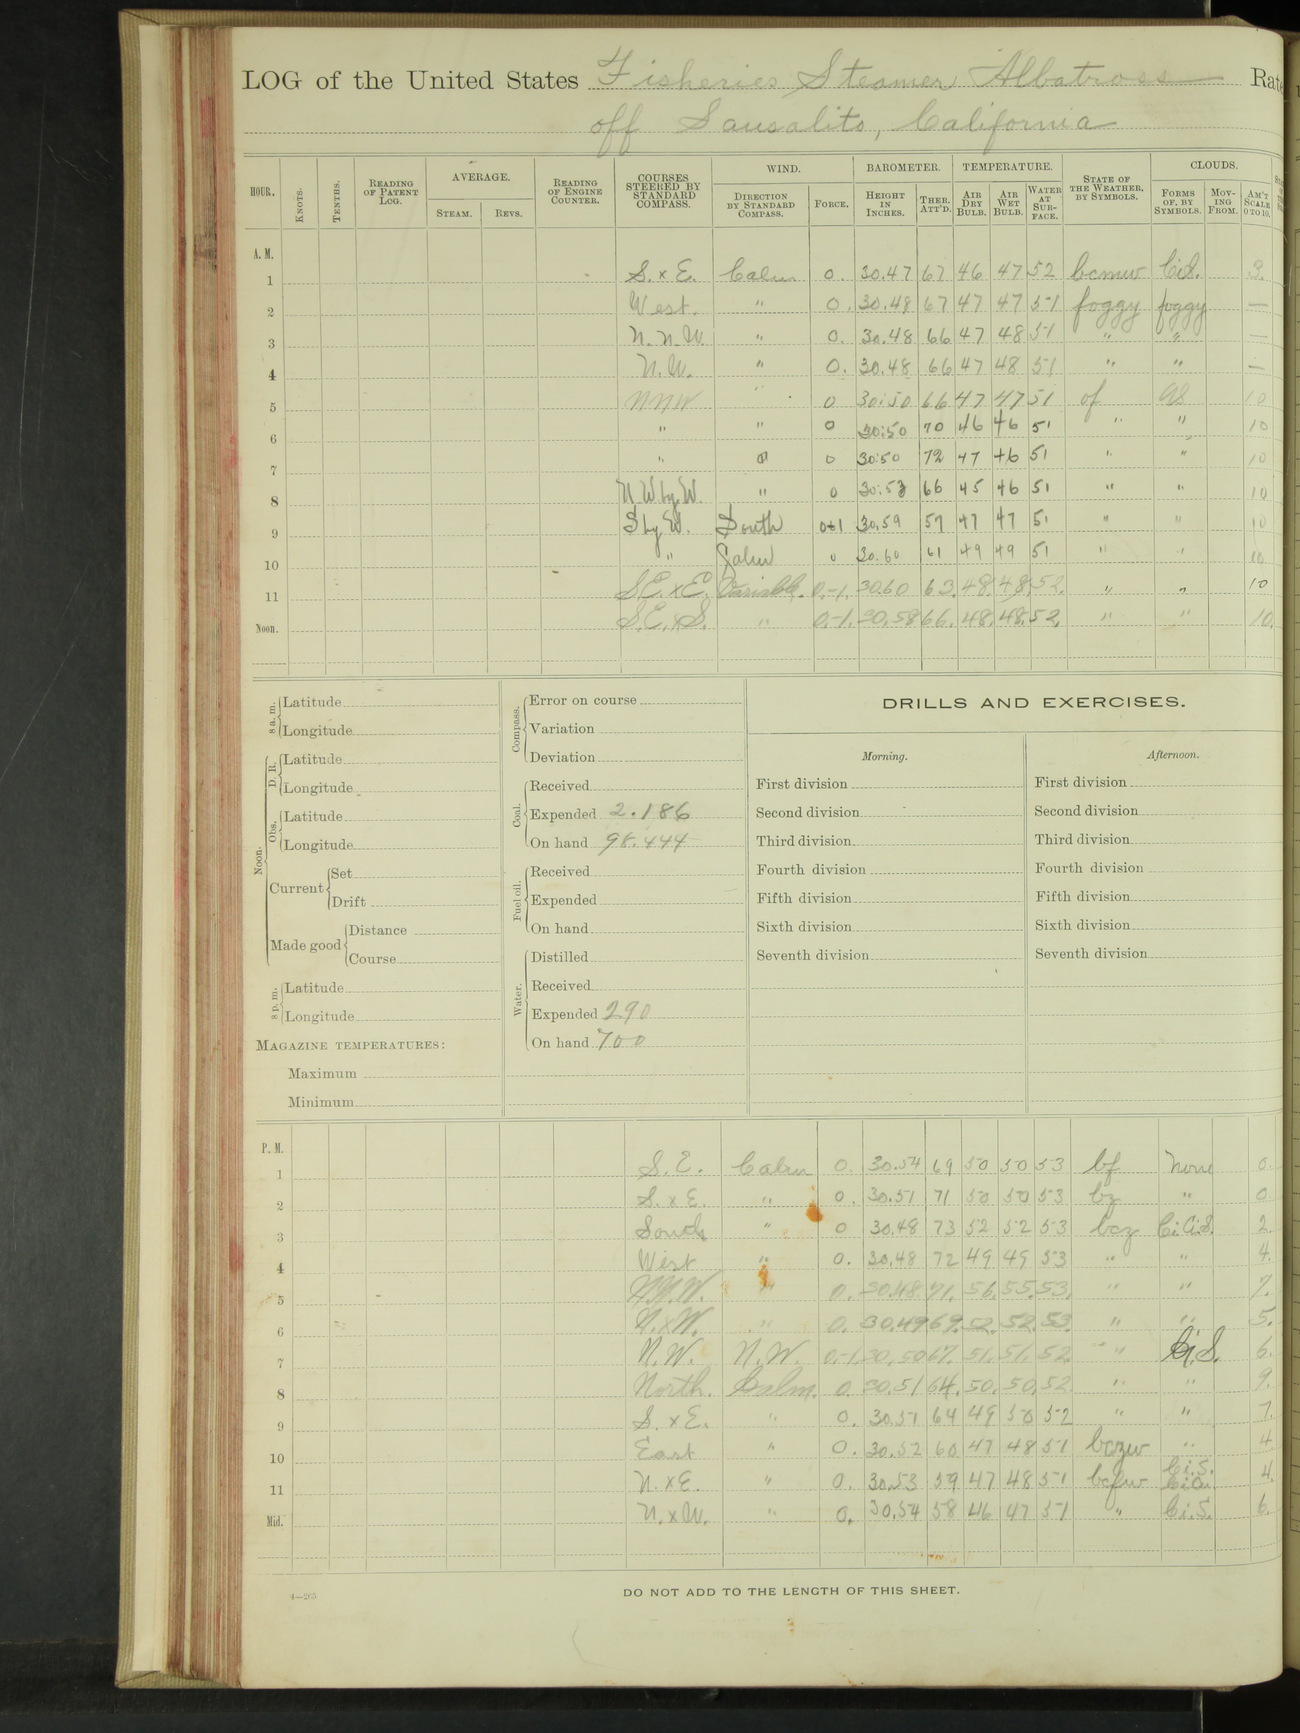 LOG of the United States Fisheries Steamer Albatross Rate
off Sausalito, California
HOUR. KNOTS. TENTHS. READING OF PATENT LOG. AVERAGE. STEAM. REVS. READING OF ENGINE COUNTER. COURSES STEERED BY STANDARD COMPASS. WIND. DIRECTION BY STANDARD COMPASS. FORCE. BAROMETER. HEIGHT IN INCHES. THER. ATT'D. TEMPERATURE. AIR DRY BULB. AIR WET BULB. WATER AT SURFACE. STATE OF THE WEATHER, BY SYMBOLS. CLOUDS. FORMS OF, BY SYMBOLS. MOVING FROM. AM'T SCALE 0 TO 10.
A. M.
1 S. x E. Calm 0. 30.47 67 46 47 52 bcmw Ci.S. 3.
2 West. " 0. 30.48 67 47 47 51 foggy foggy —
3 N.N.W. " 0. 30.48 66 47 48 51 " " —
4 N.W. " 0. 30.48 66 47 48 51 " " —
5 NNW " 0 30:50 66 47 47 51 of 10
6 " " 0 30:50 70 46 46 51 " " 10
7 " " 0 30:50 72 47 46 51 " " 10
8 N.W.by.W. " 0 30:53 66 45 46 51 " " 10
9 S by W. South 0+1 30.59 59 47 47 51 " " 10
10 " Calm 0 30.60 61 49 49 51 " " 10
11 S.E. x E. Variable. 0.-1. 30.60 63. 48. 48. 52. " " 10
Noon. S.E. x S. " 0.-1. 30.58 66. 48. 48. 52. " " 10.
8 a. m. Latitude
Longitude
Noon. D. R. Latitude
Longitude
Obs. Latitude
Longitude
Current Set
Drift
Made good Distance
Course
8 p. m. Latitude
Longitude
MAGAZINE TEMPERATURES:
Maximum
Minimum
Compass. Error on course
Variation
Deviation
Coal. Received
Expended 2.186
On hand 98.444
Fuel oil. Received
Expended
On hand
Water. Distilled
Received
Expended 290
On hand 700
DRILLS AND EXERCISES.
Morning.
First division
Second division
Third division
Fourth division
Fifth division
Sixth division
Seventh division
Afternoon.
First division
Second division
Third division
Fourth division
Fifth division
Sixth division
Seventh division
P. M.
1 S.E. Calm 0. 30.54 69 50 50 53 bf None 0.
2 S. x E. " 0. 30.51 71 50 50 53 bz " 0
3 South " 0 30.48 73 52 52 53 bcz Ci. Ci.S. 2.
4 West " 0. 30.48 72 49 49 53 " " 4.
5 N.N.W. " 0. 30.48 71. 56. 55. 53. " " 7.
6 N.xW. " 0. 30.49 69. 52. 52. 53. " " 5.
7 N.W. N.W. 0.-1. 30.50 67. 51. 51. 52. " " Ci.S. 6.
8 North. Calm. 0. 30.51 64. 50. 50. 52 " " 9.
9 S. x E. " 0. 30.51 64 49 50 52 " " 7.
10 East " 0. 30.52 60 47 48 51 bczw " 4
11 N. x E. " 0. 30.53 59 47 48 51 bcfw Ci.S. Ci.Cu. 4.
Mid. N. x W. " 0. 30.54 58 46 47 51 " Ci.S. 6.
4—265
DO NOT ADD TO THE LENGTH OF THIS SHEET.